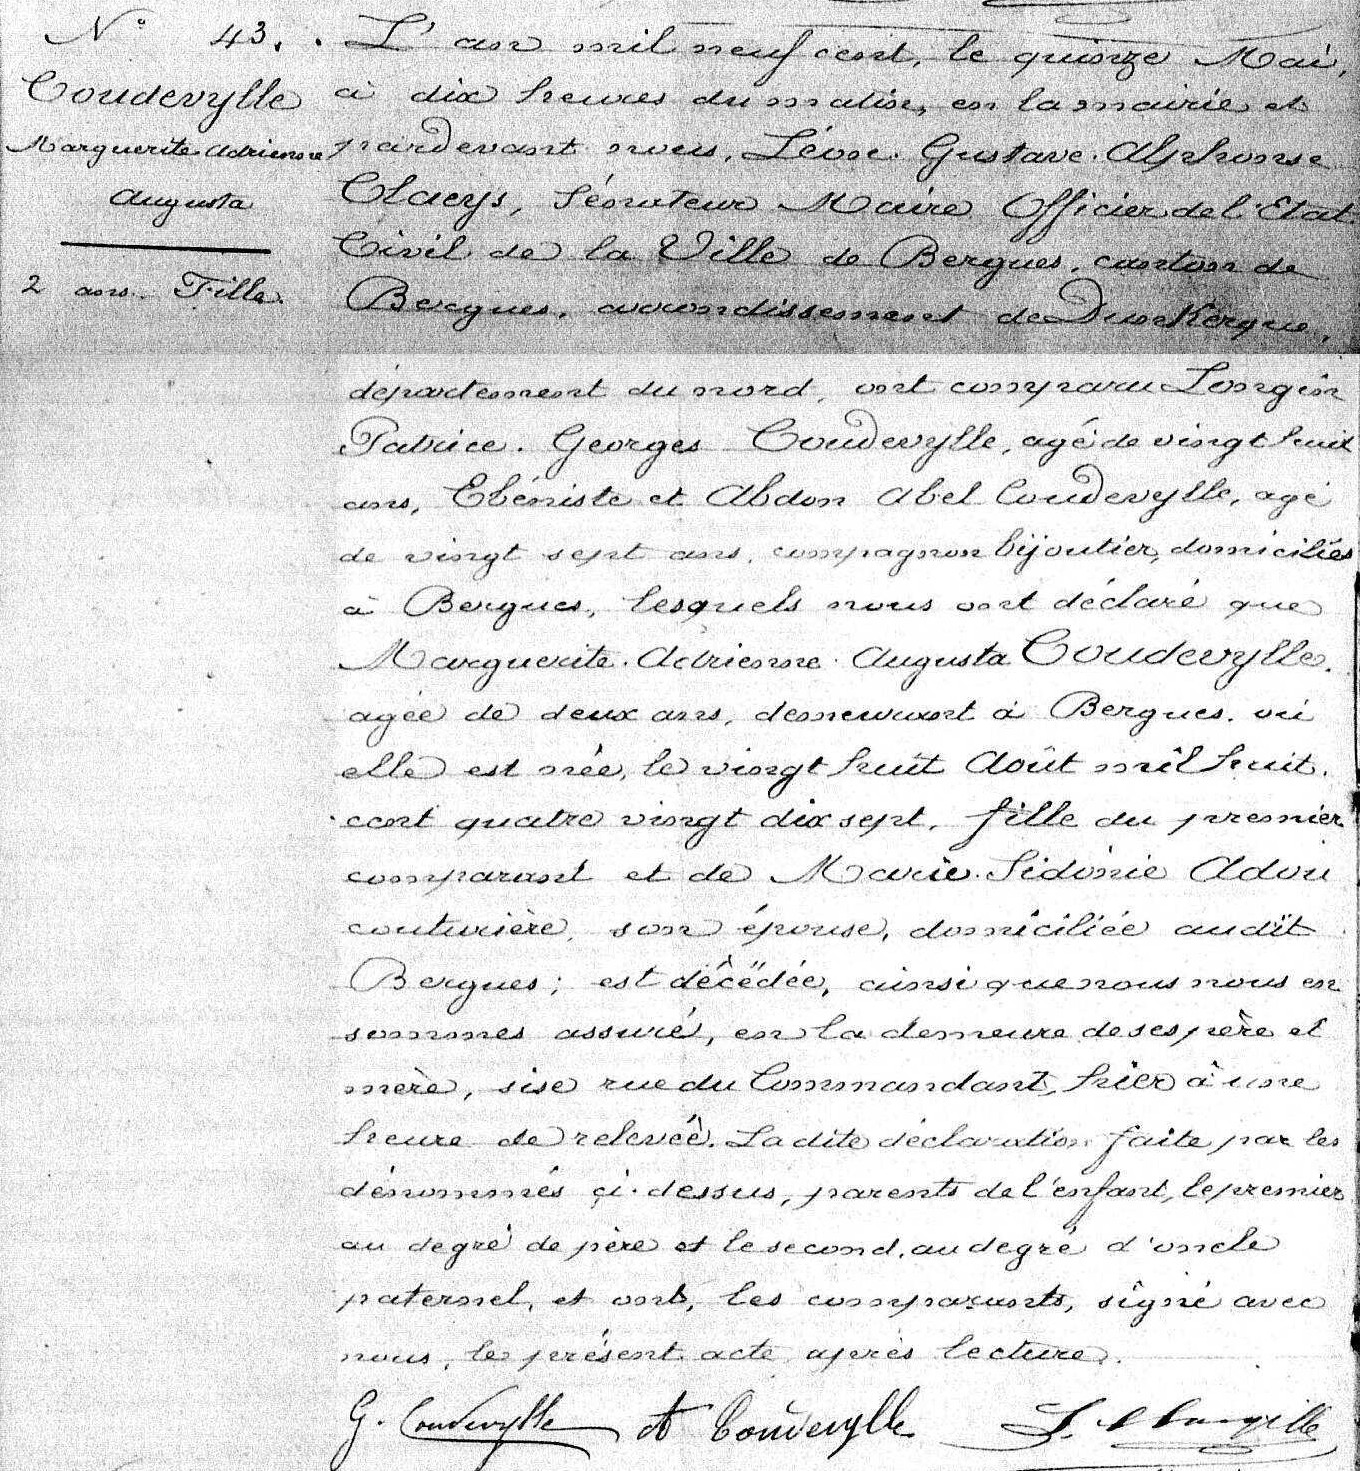 N° 43.
Coudevylle
Marguerite Adrienne
Augusta
2 ans. Fille.
L'an mil neuf cent, le quinze Mai,
à dix heures du matin, en la mairie et
pardevant nous, Léon. Gustave. Alphonse
Claeys, Sénateur Maire Officier de l'Etat
Civil de la Ville de Bergues, canton de
Bergues, arrondissement de Dunkerque,
département du nord, ont comparu Longin
Patrice. Georges Coudevylle, agé de vingt huit
ans, Ebéniste et Abdon Abel Coudevylle, agé
de vingt sept ans, compagnon bijoutier, domiciliés
à Bergues, lesquels nous ont déclaré que
Marguerite. Adrienne. Augusta Coudevylle.
agée de deux ans, demeurant à Bergues. où
elle est née, le vingt huit Août mil huit.
cent quatre vingt dix sept, fille du premier
comparant et de Marie. Sidonie Adou
couturière, son épouse, domiciliée audit
Bergues; est décédée, ainsi que nous nous en
sommes assuré, en la demeure de ses père et
mère, sise rue du Commandant, hier à une
heure de relevée. La dite déclaration faite par les
dénommés çi-dessus, parents de l'enfant, le premier
au degré de père et le second, au degré d'oncle
paternel, et ont, les comparants, signé avec
nous, le présent acte après lecture.
G. Coudevylle A Coudevylle